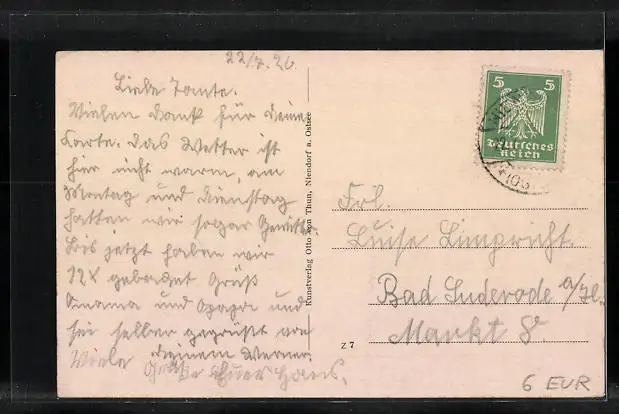 22/7. 26
Liebe Tante.
Vielen Dank für deine
Karte. Das Wetter ist
hier nicht warm, am
Montag und Dienstag
hatten wir sogar Gewitter.
Bis jetzt haben wir
12x gebadet Grüß
Omama und Opapa und
sei selber gegrüßt von
deinem Werner.
Viele Grüße Euer Hans.
Kunstverlag Otto von Thun, Niendorf a. Ostsee
5 5
Deutsches
Reich
Frl.
Luise Limpricht.
Bad Suderode a/H.
Markt 8.
Z 7
6 EUR